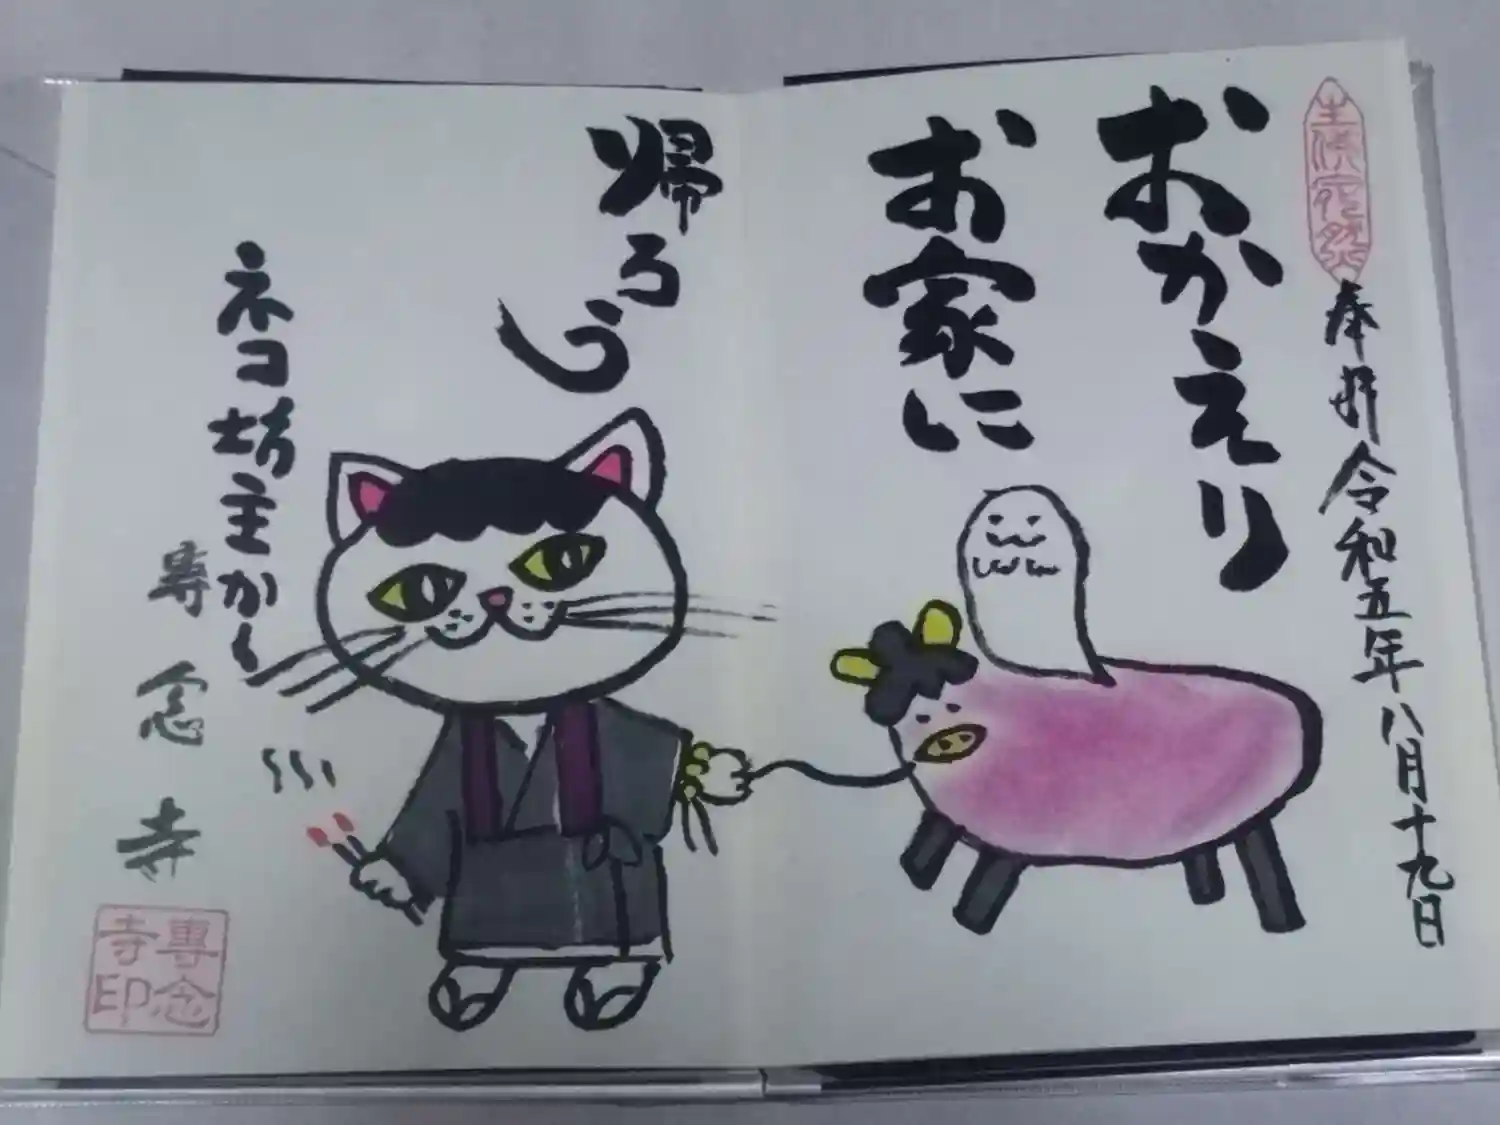 奉拝 令和五年八月十九日
おかえり
お家に
帰ろう
ネコ坊主から
專念寺
專念
寺印